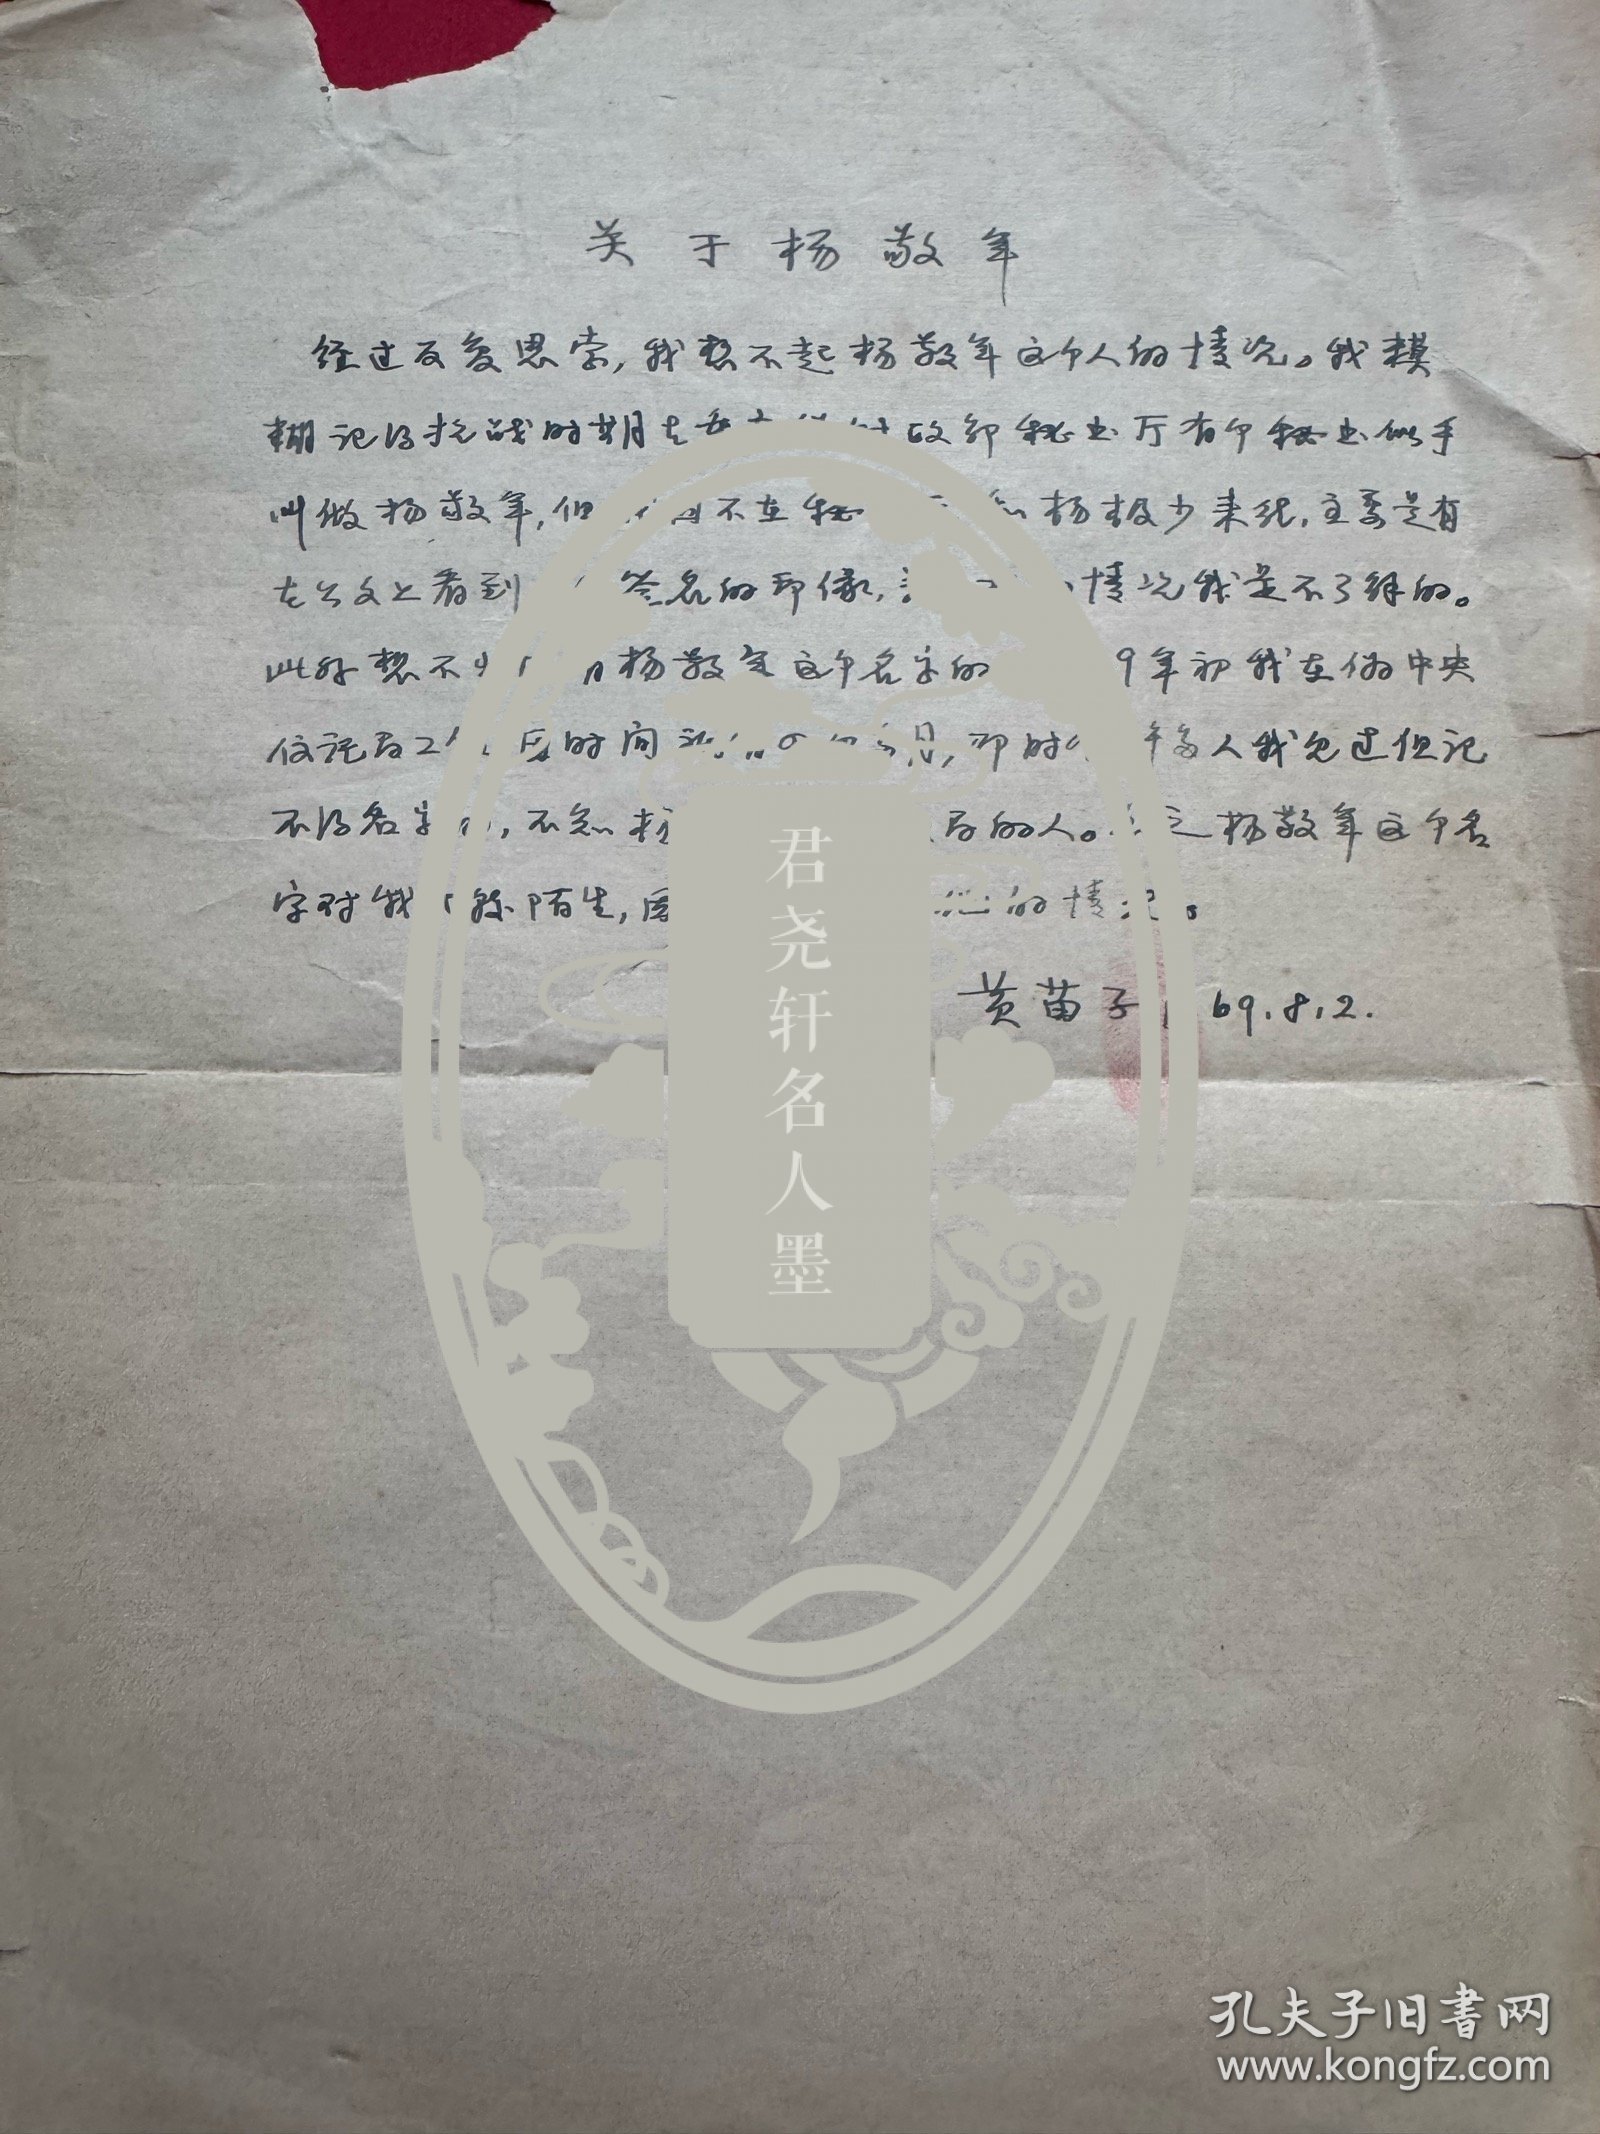 关于杨敬年
经过反复思索,我想不起杨敬年这个人的情况。我模
糊记得抗战时期在重庆伪财政部秘书厅有个秘书似乎
叫做杨敬年,但 不在秘 杨极少来往,主要是有
在公文上看到 签名的印像, 情况我是不了解的。
此外想不 杨敬年这个名字的 9年初我在伪中央
信託局工作 时间 那时 许多人我见过但记
不得名字 ,不知杨 局的人。总之杨敬年这个名
字对我 陌生, 他的情况。
黄苗子 69.8.2.
君尧轩名人墨
孔夫子旧书网
www.kongfz.com